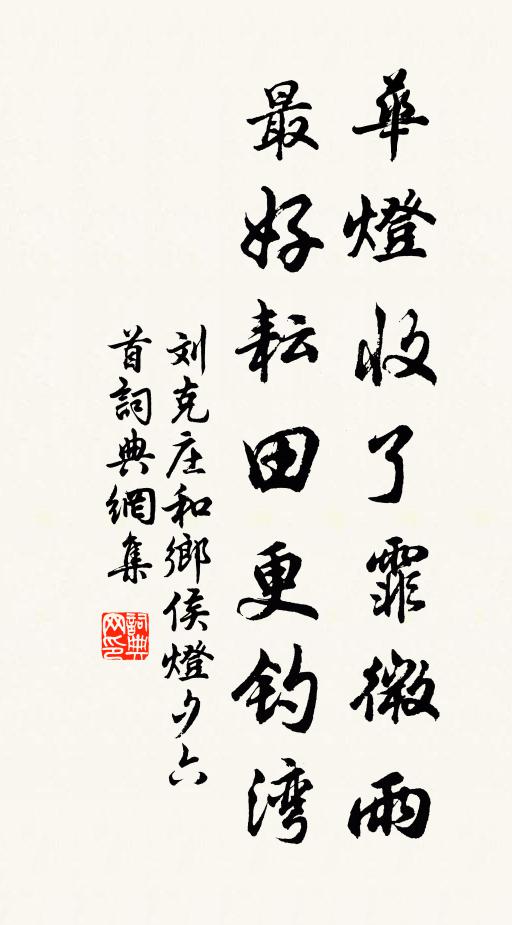 華燈收了霏微雨
最好耘田更釣湾
刘克庄和鄉侯燈夕六
首詞典網集
詞典网印